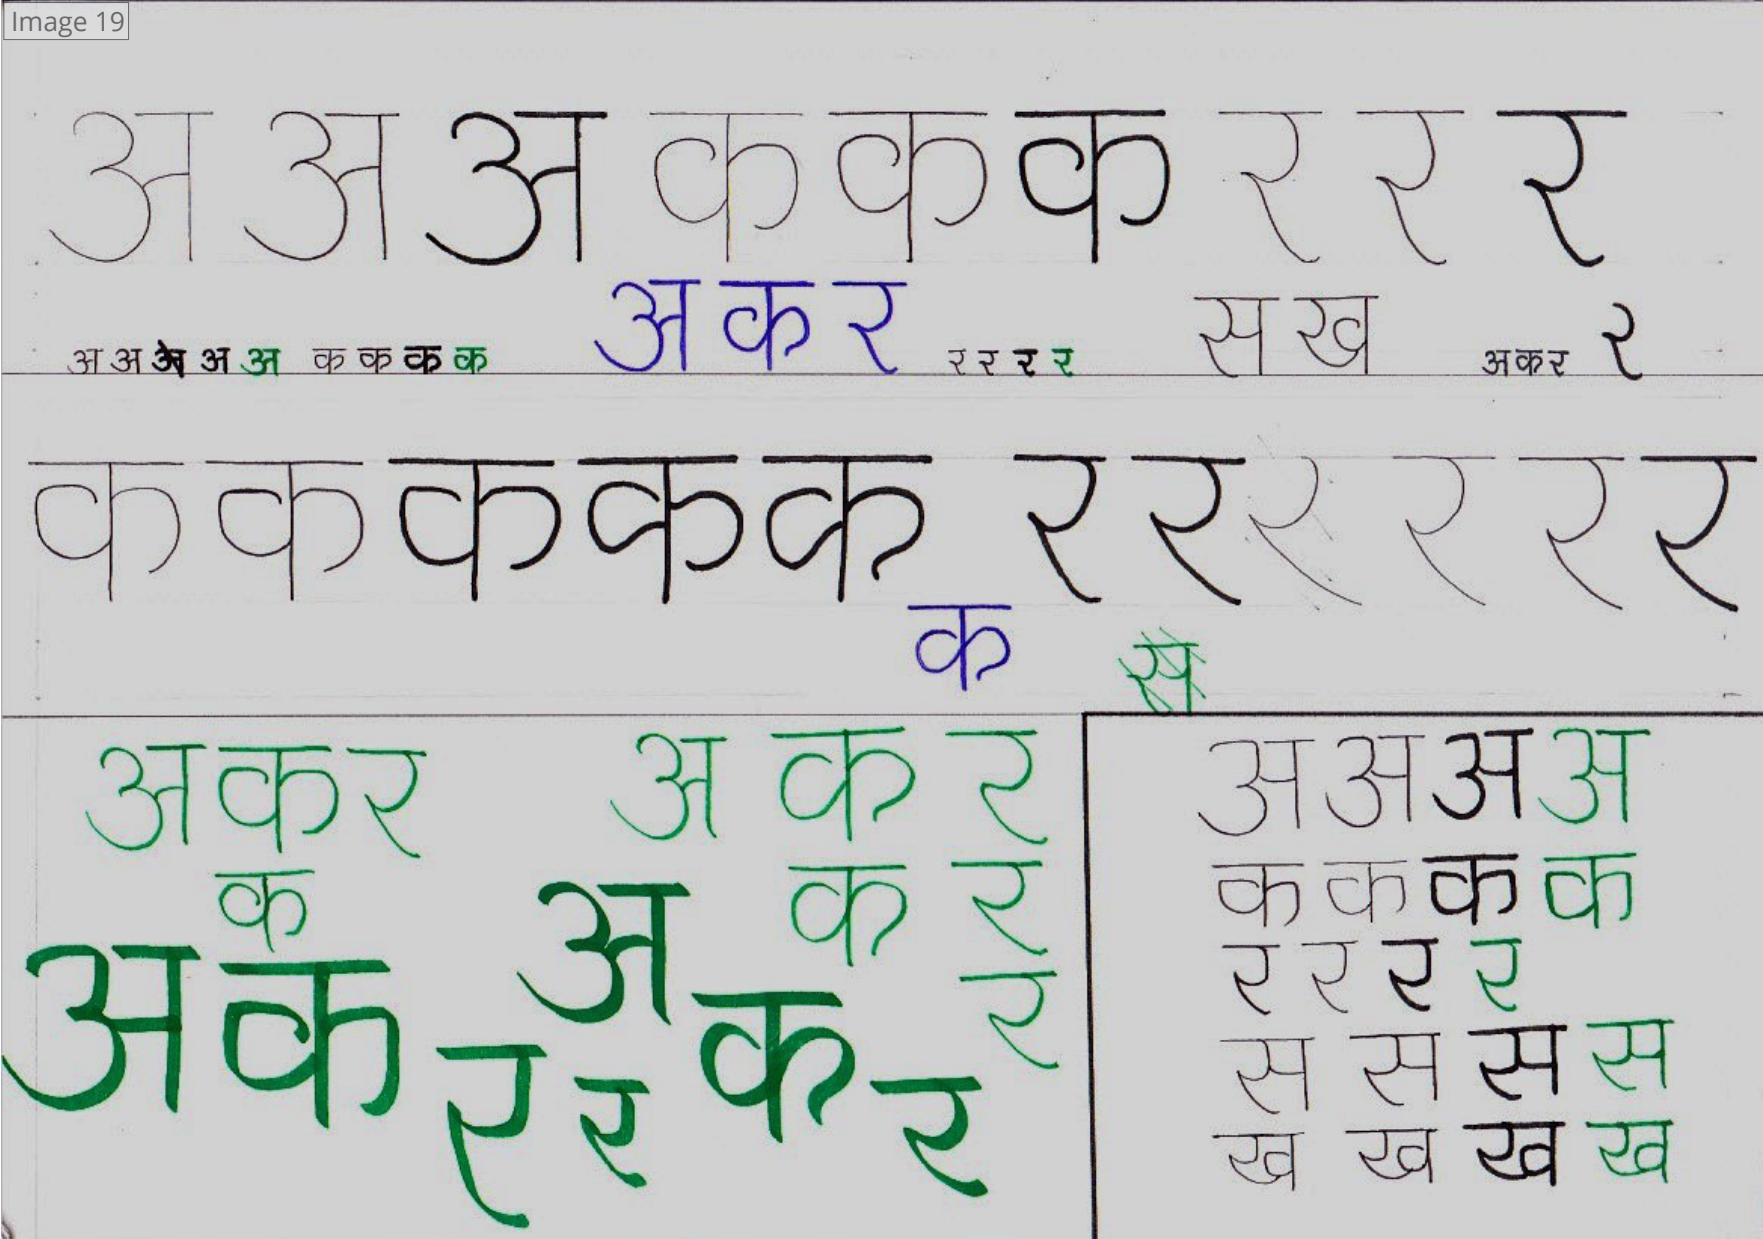 Image 19
अ अ अ क क क र र र
अ क र
अ अ अ अ अ क क क क
र र र र
स ख
अ क र र
क क क क क र र र र र र
क
स
अ क र
अ क र
क
क र
अ
र
अ क
क
र र
र
अ अ अ अ
क क क क
र र र र
स स स स
ख ख ख ख